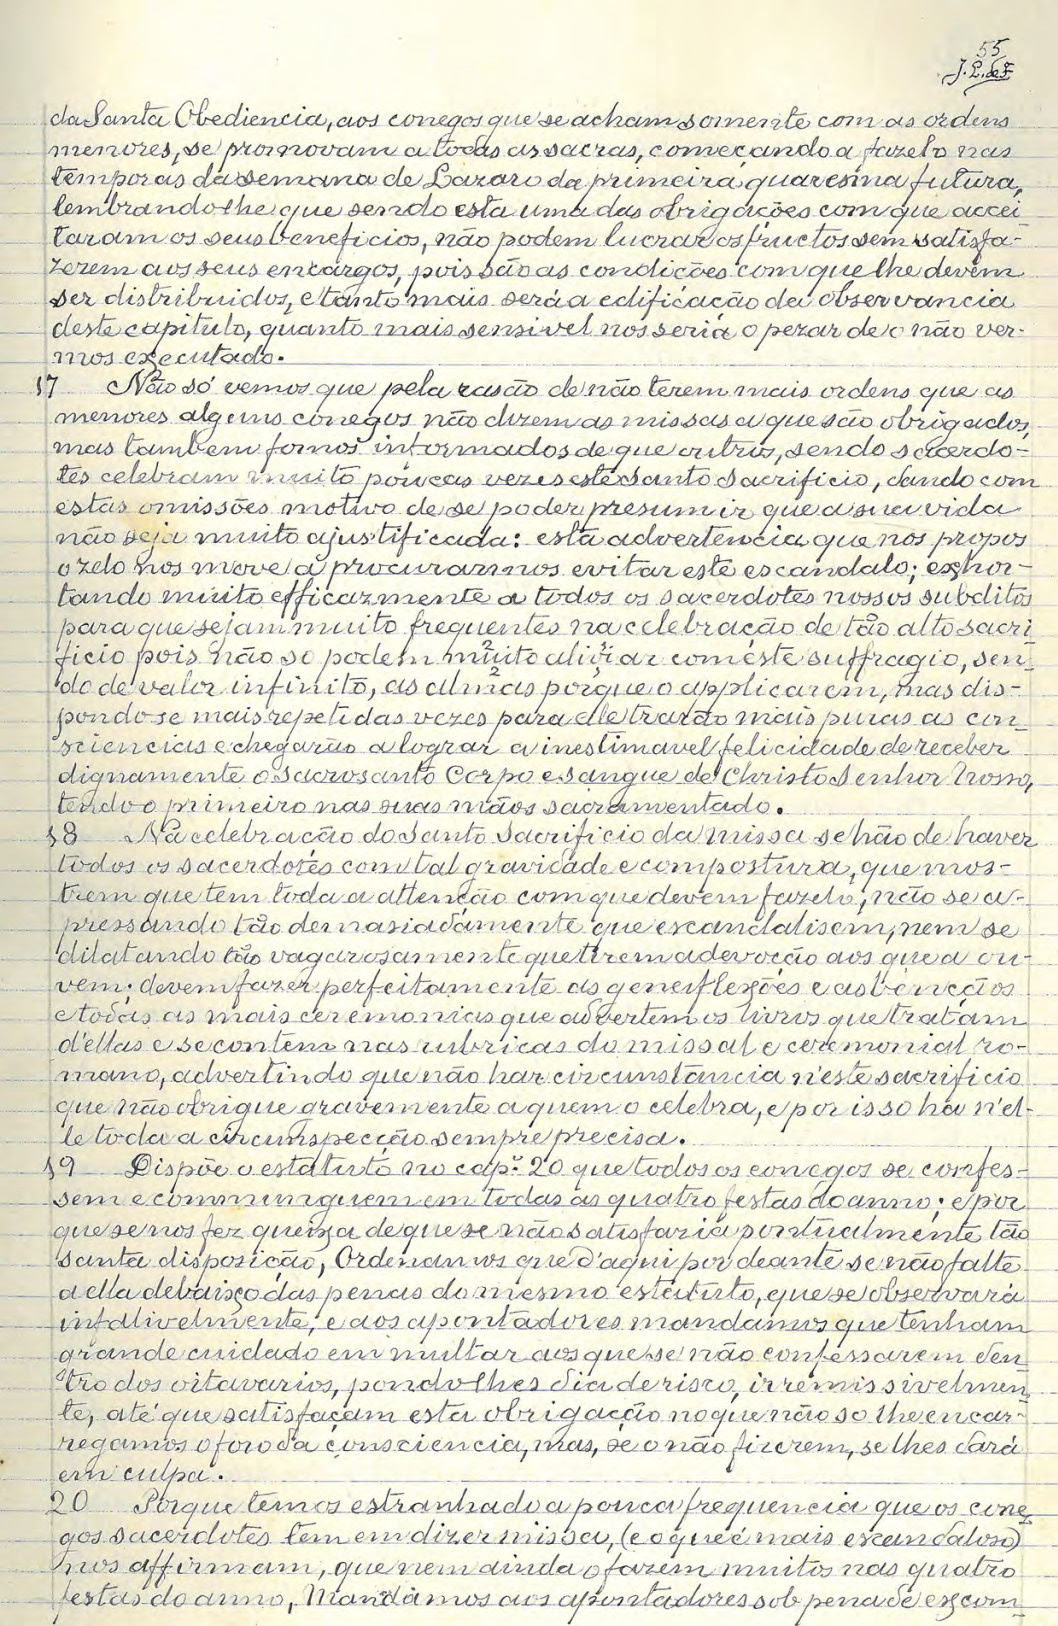 55
J. L. de F
da Santa Obediencia, aos conegos que se acham somente com as ordens
menores, se promovam a todas as sacras, começando a fazelo nas
temporas da semana de Lazaro da primeira quaresma futura,
lembrandolhe que sendo esta uma das obrigações com que accei
taram os seus beneficios, não podem lucrar os fructos sem satisfa-
zerem aos seus encargos, pois são as condições com que lhe devem
ser distribuidos, e tanto mais será a edificação da observancia
deste capitulo, quanto mais sensivel nos seria o pezar de o não ver-
mos executado.
17 Não só vemos que pela rasão de não terem mais ordens que as
menores alguns conegos não dizem as missas a que são obrigados,
mas tambem fomos informados de que outros, sendo sacerdo-
tes celebram muito poucas vezes este santo sacrificio, dando com
estas omissões motivo de se poder presumir que a sua vida
não seja muito ajustificada: esta advertencia que nos propos
o zelo nos move a procurarmos evitar este escandalo; exhor-
tando muito efficazmente a todos os sacerdotes nossos subditos
para que sejam muito frequentes na celebração de tão alto sacri
ficio pois não só podem muito aliviar com este suffragio, sen-
do de valor infinito, as almas porque o applicarem, mas dis-
pondose mais repetidas vezes para elle trarão mais puras as con
sciencias e chegarão a lograr a inestimavel felicidade de receber
dignamente o sacrosanto Corpo e sangue de Christo Senhor Nosso,
tendo o primeiro nas suas mãos sacramentado.
18 Na celebração do Santo Sacrificio da missa se hão de haver
todos os sacerdotes com tal gravidade e compostura, que mos-
trem que tem toda a attenção com que devem fazelo, não se a-
pressando tão demasiadamente que escandalisem, nem se
dilatando tão vagarosamente que tirem a devoção aos que a ou-
vem; devem fazer perfeitamente as genuflexões e as bencçãos
e todas as mais ceremonias que advertem os livros que tratam
d'ellas e se contem nas rubricas do missal e ceremonial ro-
mano, advertindo que não har circunstancia n'este sacrificio
que não obrigue gravemente a quem o celebra, e por isso ha n'el-
le toda a circumspecção sempre precisa.
19 Dispõe o estatuto no cap.º 20 que todos os conegos se confes-
sem e communguem em todas as quatro festas do anno; e por
que se nos fez queixa de que se não satisfaria pontualmente tão
santa disposição, Ordenamos que d'aqui por deante se não falte
a ella debaixo das penas do mesmo estatuto, que se observará
infalivelmente, e aos apontadores mandamos que tenham
grande cuidado em multar aos que se não confessarem den
tro dos oitavarios, pondolhes dia de risco, irremissivelmen
te, até que satisfaçam esta obrigação no que não so lhe encar-
regamos o foro da consciencia, mas, se o não fizerem, se lhes dará
em culpa.
20 Porque temos estranhado a pouca frequencia que os cone
gos sacerdotes tem em dizer missa, (e o que é mais escandaloso)
nos affirmam, que nem ainda o fazem muitos nas quatro
festas do anno, Mandâmos aos apontadores sob pena de excom